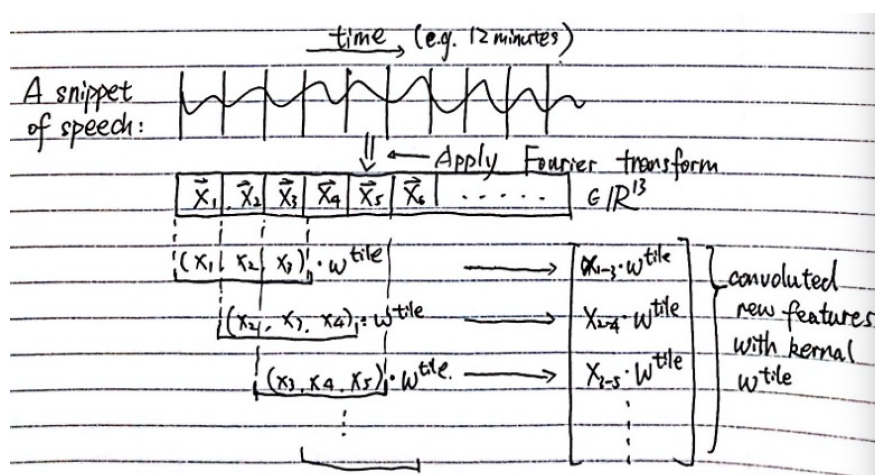 time (e.g. 12 minutes)
A snippet
of speech:
Apply Fourier transform
x⃗₁ x⃗₂ x⃗₃ x⃗₄ x⃗₅ x⃗₆ ...... ∈ ℝ¹³
(x₁ x₂ x₃) · w^tile → x₁₋₃ · w^tile
(x₂, x₃, x₄) · w^tile → x₂₋₄ · w^tile
(x₃, x₄, x₅) · w^tile. → x₃₋₅ · w^tile
convoluted
new features
with kernal
w^tile